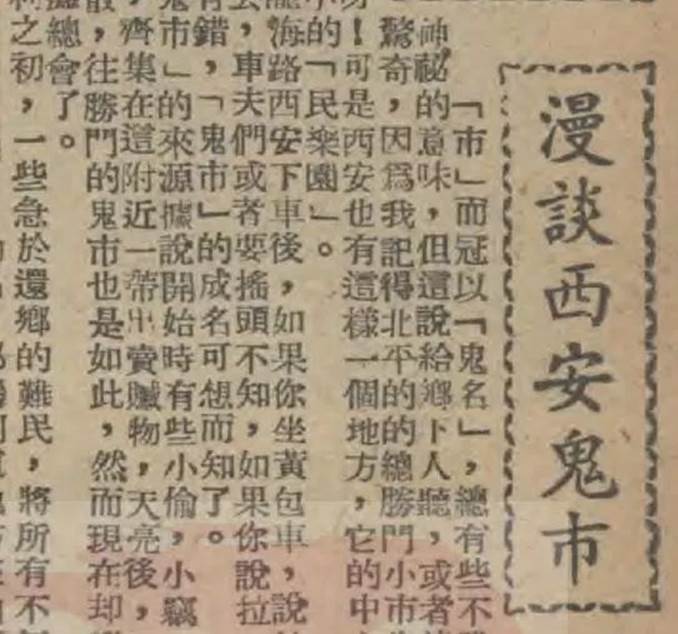 漫談西安鬼市
「市」而冠以「鬼名」,總有些不
神祕的意味,但這說給鄉下人聽,或者
驚奇,因爲我記得北平的的總勝門小市
!可是西安也有這樣一個地方,它的中
的「民樂園」。
海路西安下車後,如果你坐黃包車,說
,車夫們或者要搖頭不知,如果你說拉
有錯,「鬼市」的成名可想而知了。
鬼市」的來源據說開始時有些小偷,小竊
,齊集在這附近一帶出賣贓物,天亮後,
散,往勝門的鬼市也是如此,然而現在却
總會了。
之初,一些急於還鄉的難民,將所有不